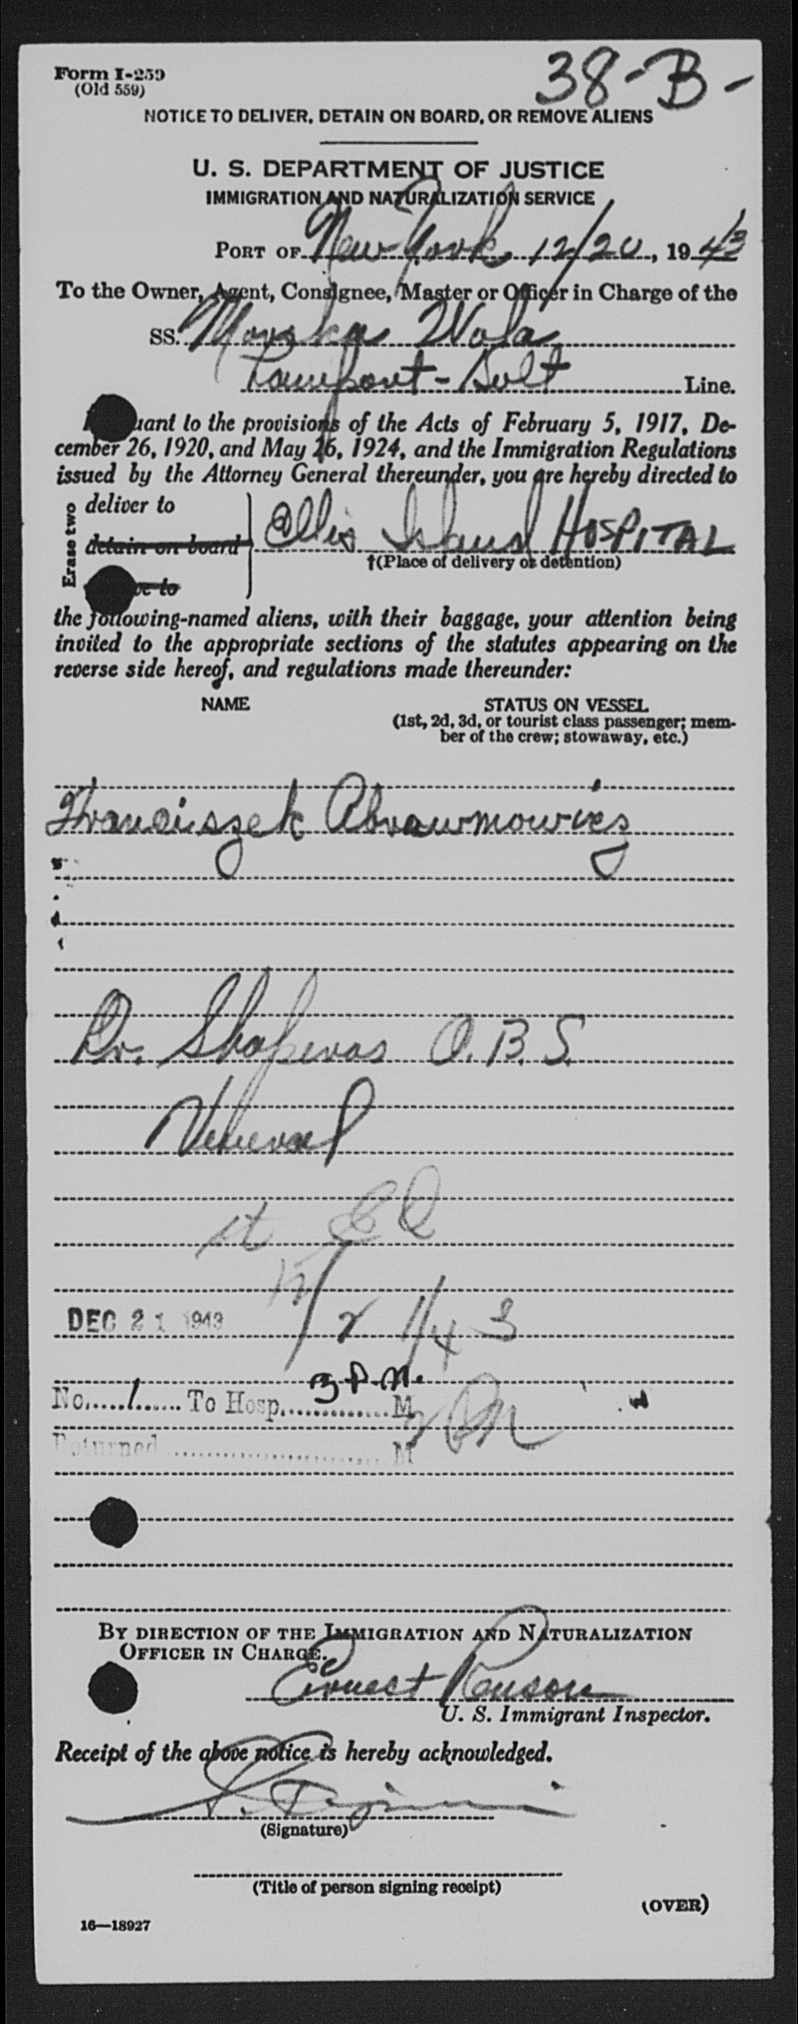 Form I-259
(Old 559)
38-B-
NOTICE TO DELIVER, DETAIN ON BOARD, OR REMOVE ALIENS
U. S. DEPARTMENT OF JUSTICE
IMMIGRATION AND NATURALIZATION SERVICE
PORT OF New York, 12/20, 1943
To the Owner, Agent, Consignee, Master or Officer in Charge of the
SS. Morska Wola
Line.
uant to the provisions of the Acts of February 5, 1917, De-
cember 26, 1920, and May 26, 1924, and the Immigration Regulations
issued by the Attorney General thereunder, you are hereby directed to
Erase two
deliver to
detain on board
Ellis Island HOSPITAL
†(Place of delivery or detention)
ve to
the following-named aliens, with their baggage, your attention being
invited to the appropriate sections of the statutes appearing on the
reverse side hereof, and regulations made thereunder:
NAME
STATUS ON VESSEL
(1st, 2d, 3d, or tourist class passenger; mem-
ber of the crew; stowaway, etc.)
Franciszek Abrawmowicz
Dr. Shapiras O.B.S.
Venereal
12/21/43
DEC 21 1943
3 P.M.
No. 1 To Hosp. M
Returned M
BY DIRECTION OF THE IMMIGRATION AND NATURALIZATION
OFFICER IN CHARGE.
Ernest
U. S. Immigrant Inspector.
Receipt of the above notice is hereby acknowledged.
(Signature)
(Title of person signing receipt)
(OVER)
16—18927